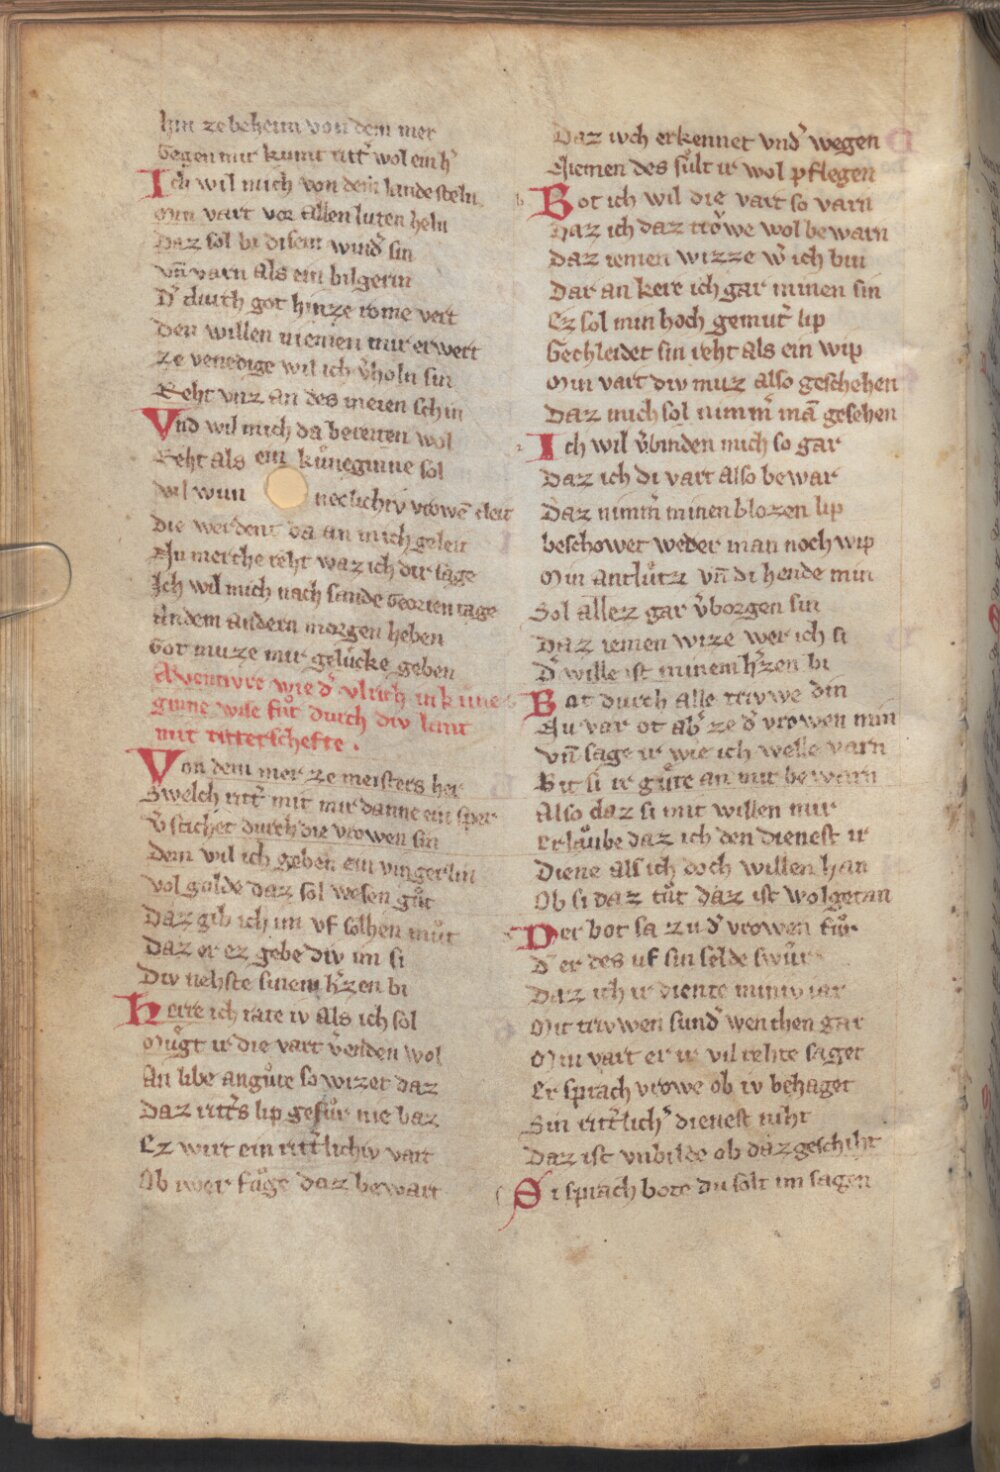 hin ze beheim von dem mer
Gegen mir kumt ritt͛ wol ein h͛
Ich wil mich von dem lande steln
Min vart vor allen luten heln
Daz sol bi disem wind͛ sin
Vn̄ varn als ein bilgerin
D͛ durch got hinze rome vert
Den willen niemen mir erwert
Ze venedige wil ich v͛holn sin
Reht vnz an des meien schin
Vnd wil mich da bereiten wol
Reht als ein kuͤneginne sol
Vil wun neclichiv vrowē cleit
Die werdent da an mich geleit
Nu merche reht waz ich dir sage
Ich wil mich nach sande Georien tage
An dem andern morgen heben
Got muze mir gelucke geben
Aventivre wie d͛ vlrich in kune
ginne wise fuͦr durch div lant
mit ritterschefte.
Von dem mer ze meisters her
Swelch ritt͛ mit mir danne ein sper
V͛stichet durch die vrowen sin
Dem wil ich geben ein vingerlin
Vol golde daz sol wesen guͦt
Daz gib ich im vf solhen muͦt
Daz er ez gebe div im si
Div nehste sinem h͛zen bi
Herre ich rate iv als ich sol
Muͦgt ir die vart v͛enden wol
An libe an guͦte so wizet daz
Daz ritt͛s lip gefuͦr nie baz
Ez wirt ein ritt͛lichiv vart
Ob iwer fuͦge daz bewart
Daz iwch erkennet vnd͛ wegen
Niemen des suͦlt ir wol pflegen
Bot ich wil die vart so varn
Daz ich daz trowe wol bewarn
Daz iemen wizze w͛ ich bin
Dar an kere ich gar minen sin
Ez sol min hoch gemut͛ lip
Gechleidet sin reht als ein wip
Min vart div muz also geschehen
Daz mich sol nimm͛ mā gesehen
Ich wil v͛binden mich so gar
Daz ich di vart also bewar
Daz nimm͛ minen blozen lip
beschowet weder man noch wip
Min antlutze vn̄ di hende min
Sol allez gar v͛borgen sin
Daz iemen wize wer ich si
D͛ wille ist minem h͛zen bi
Bot durch alle triwe din
Nu var ot ab͛ ze d͛ vrowen min
Vn̄ sage ir wie ich welle varn
Bit si ir guͦte an mir bewarn
Also daz si mit willen mir
Erlaube daz ich den dienest ir
Diene als ich doch willen han
Ob si daz tuͦt daz ist wolgetan
Der bot sa zu d͛ vrowen fuͦr
D͛ er des uf sin selde swuͦr
Daz ich ir diente miniv iar
Mit triwen sund͛ wenchen gar
Min vart er ir vil rehte saget
Er sprach vrowe ob iv behaget
Sin ritt͛lich͛ dienest niht
Daz ist vnbilde ob daz geschiht
Si sprach bote du solt im sagen